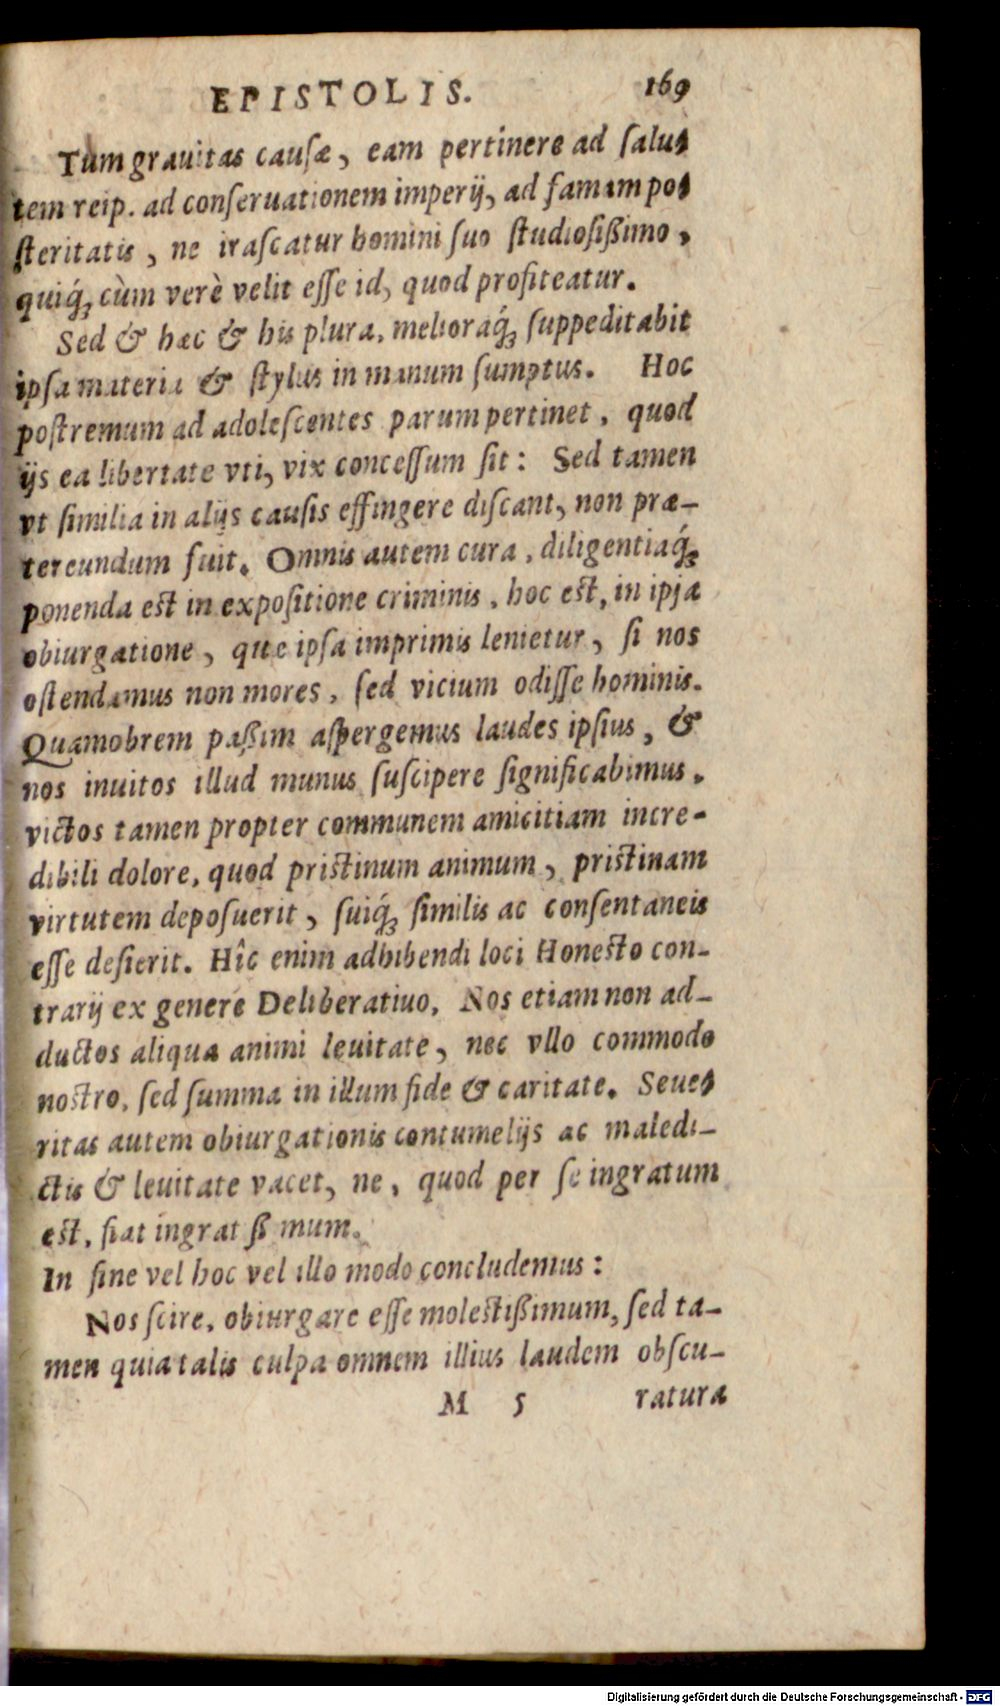 EPISTOLIS. 169
Tum grauitas causæ, eam pertinere ad salu-
tem reip. ad conseruationem imperij, ad famam po-
steritatis, ne irascatur homini suo studiosißimo,
quiq́; cùm verè velit esse id, quod profiteatur.
Sed & hæc & his plura, melioraq́; suppeditabit
ipsa materia & stylus in manum sumptus. Hoc
postremum ad adolescentes parum pertinet, quod
ijs ea libertate vti, vix concessum sit: Sed tamen
vt similia in alijs causis effingere discant, non præ-
tereundum fuit. Omnis autem cura, diligentiaq́;
ponenda est in expositione criminis, hoc est, in ipsa
obiurgatione, quæ ipsa imprimis lenietur, si nos
ostendamus non mores, sed vicium odisse hominis.
Quamobrem paßim aspergemus laudes ipsius, &
nos inuitos illud munus suscipere significabimus,
victos tamen propter communem amicitiam incre-
dibili dolore, quod pristinum animum, pristinam
virtutem deposuerit, suiq́; similis ac consentaneis
esse desierit. Hîc enim adhibendi loci Honesto con-
trarij ex genere Deliberatiuo, Nos etiam non ad-
ductos aliqua animi leuitate, nec vllo commodo
nostro, sed summa in illum fide & caritate. Seue-
ritas autem obiurgationis contumelijs ac maledi-
ctis & leuitate vacet, ne, quod per se ingratum
est, fiat ingrat ßi mum.
In fine vel hoc vel illo modo concludemus:
Nos scire, obiurgare esse molestißimum, sed ta-
men quia talis culpa omnem illius laudem obscu-
M 5 ratura
Digitalisierung gefördert durch die Deutsche Forschungsgemeinschaft - DFG